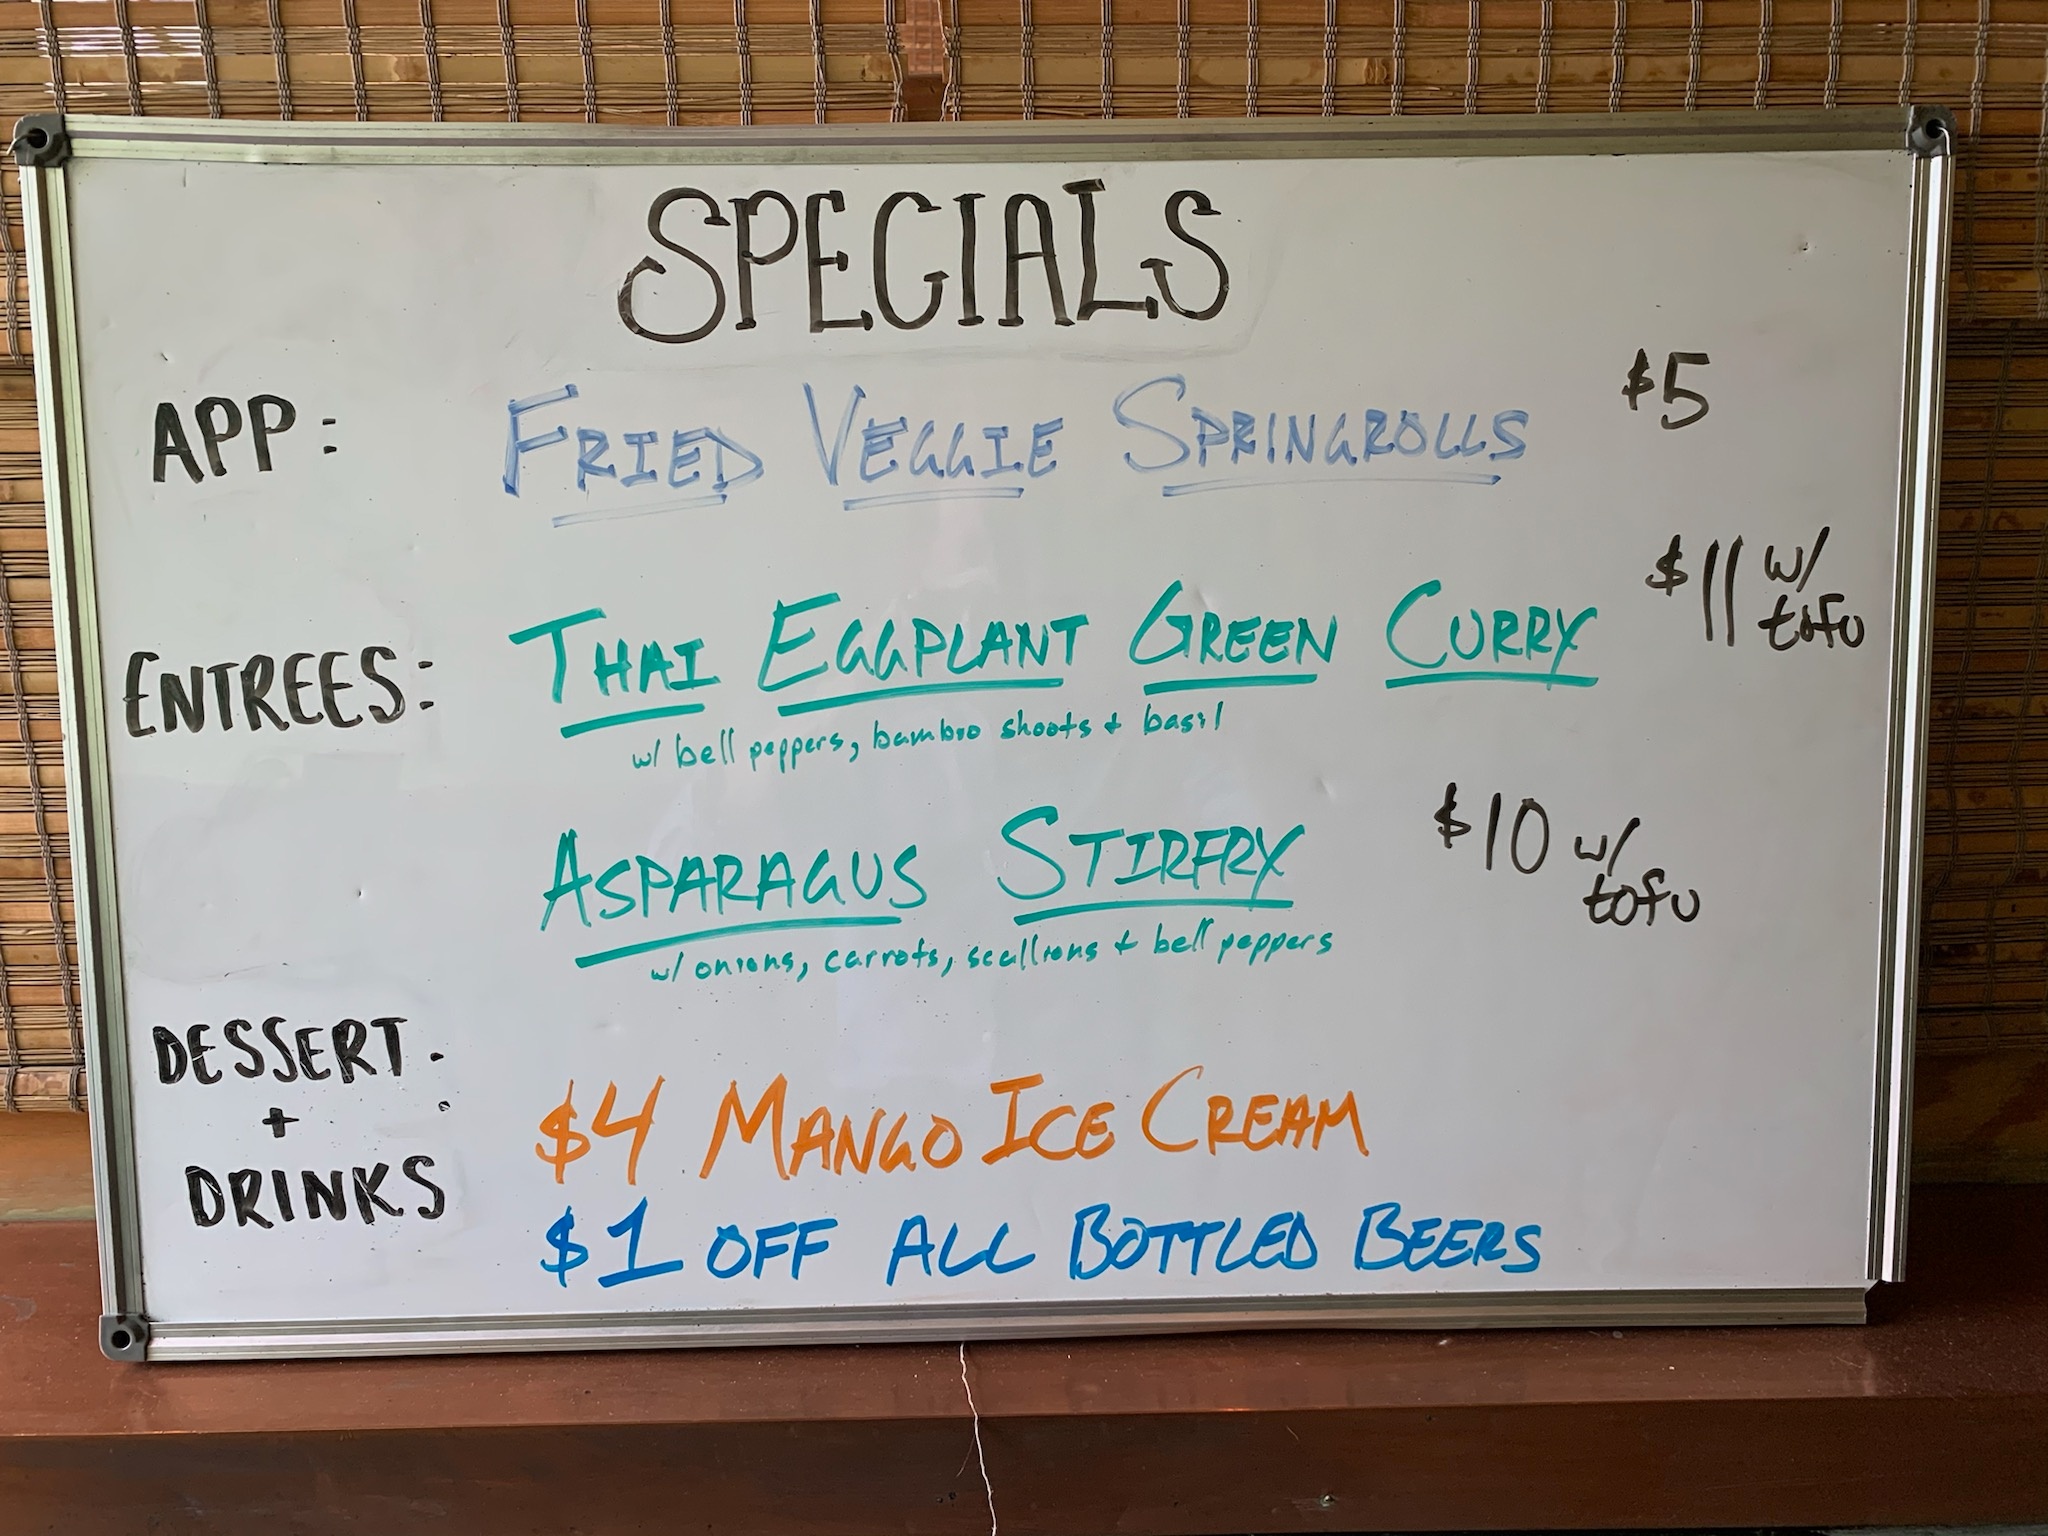 SPECIALS
APP: FRIED VEGGIE SPRINGROLLS $5
ENTREES: THAI EGGPLANT GREEN CURRY $11 w/ tofu
w/ bell peppers, bamboo shoots + basil
ASPARAGUS STIRFRY $10 w/ tofu
w/ onions, carrots, scallions + bell peppers
DESSERT :
+
DRINKS
$4 MANGO ICE CREAM
$1 OFF ALL BOTTLED BEERS